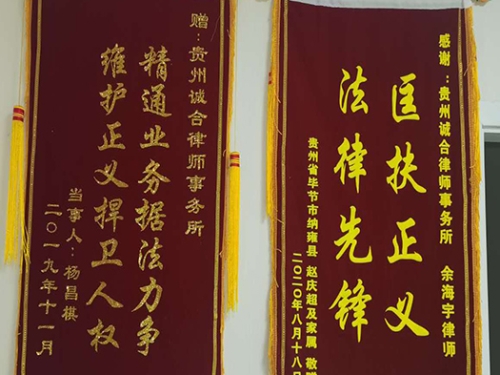 赠：贵州诚合律师事务所
精通业务据法力争
维护正义捍卫人权
当事人：杨昌棋
二〇一九年十一月
感谢：贵州诚合律师事务所 余海宇律师
匡扶正义
法律先锋
贵州省毕节市纳雍县 赵庆超及家属 敬赠
二〇二〇年八月十八日